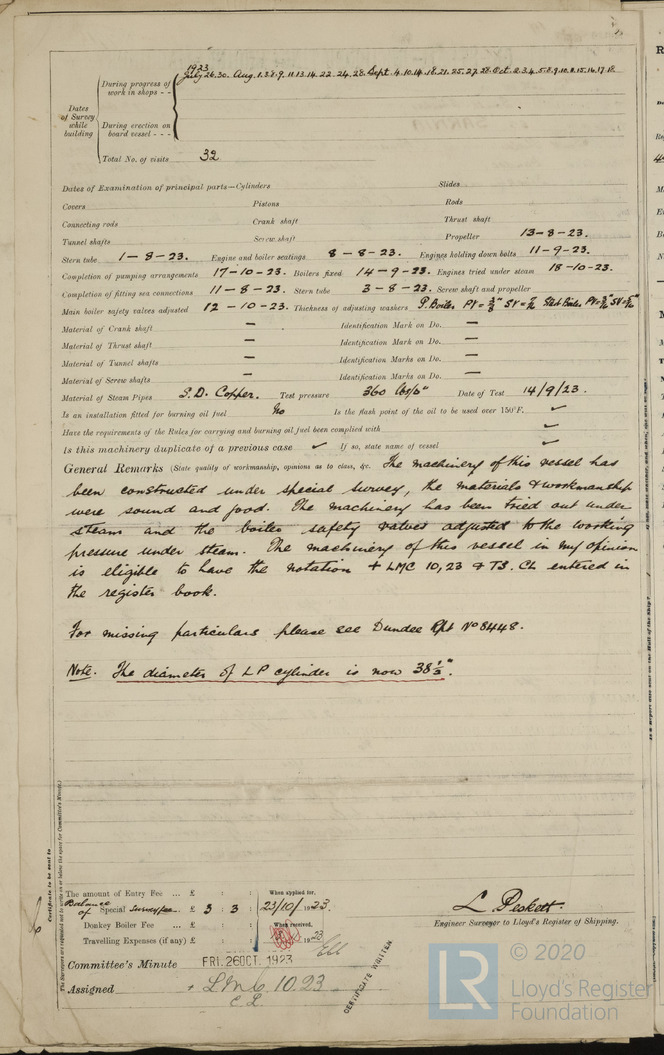 1923
July 26.30. Aug. 1.3.8.9.11.13.14.22.24.28. Sept. 4.10.14.18.21.25.27.28. Oct. 2.3.4.5.8.9.10.11.15.16.17.18
During progress of work in shops - -
Dates of Survey while building
During erection on board vessel - - -
Total No. of visits 32
Dates of Examination of principal parts—Cylinders Slides
Covers Pistons Rods
Connecting rods Crank shaft Thrust shaft
Tunnel shafts Screw shaft Propeller 13-8-23.
Stern tube 1-8-23. Engine and boiler seatings 8-8-23. Engines holding down bolts 11-9-23.
Completion of pumping arrangements 17-10-23. Boilers fixed 14-9-23. Engines tried under steam 18-10-23.
Completion of fitting sea connections 11-8-23. Stern tube 3-8-23. Screw shaft and propeller
Main boiler safety valves adjusted 12-10-23. Thickness of adjusting washers P. Boiler PV= SV= Stbd Boiler PV= SV=
Material of Crank shaft — Identification Mark on Do. —
Material of Thrust shaft — Identification Mark on Do. —
Material of Tunnel shafts — Identification Marks on Do. —
Material of Screw shafts — Identification Marks on Do. —
Material of Steam Pipes S.D. Copper. Test pressure 360 lbs/□" Date of Test 14/9/23.
Is an installation fitted for burning oil fuel No Is the flash point of the oil to be used over 150°F. ✓
Have the requirements of the Rules for carrying and burning oil fuel been complied with ✓
Is this machinery duplicate of a previous case ✓ If so, state name of vessel ✓
General Remarks (State quality of workmanship, opinions as to class, &c. The machinery of this vessel has
been constructed under special survey, the materials & workmanship
were sound and good. The machinery has been tried out under
steam and the boiler safety valves adjusted to the working
pressure under steam. The machinery of this vessel in my opinion
is eligible to have the notation + LMC 10,23 & TS. CL entered in
the register book.
For missing particulars please see Dundee Rpt No 8448.
Note. The diameter of LP cylinder is now 38 1/2".
Certificate to be sent to
The Surveyors are requested not to write on or below the space for Committee's Minute.
The amount of Entry Fee ... £ : : When applied for,
Balance of Special Survey fee £ 3 : 3 : 23/10/1923.
Donkey Boiler Fee ... £ : : When received,
Travelling Expenses (if any) £ : : 1923
L Peskett
Engineer Surveyor to Lloyd's Register of Shipping.
Committee's Minute FRI. 26 OCT. 1923
Assigned + LMC 10.23
C L
CERTIFICATE WRITTEN
LR
© 2020
Lloyd's Register
Foundation